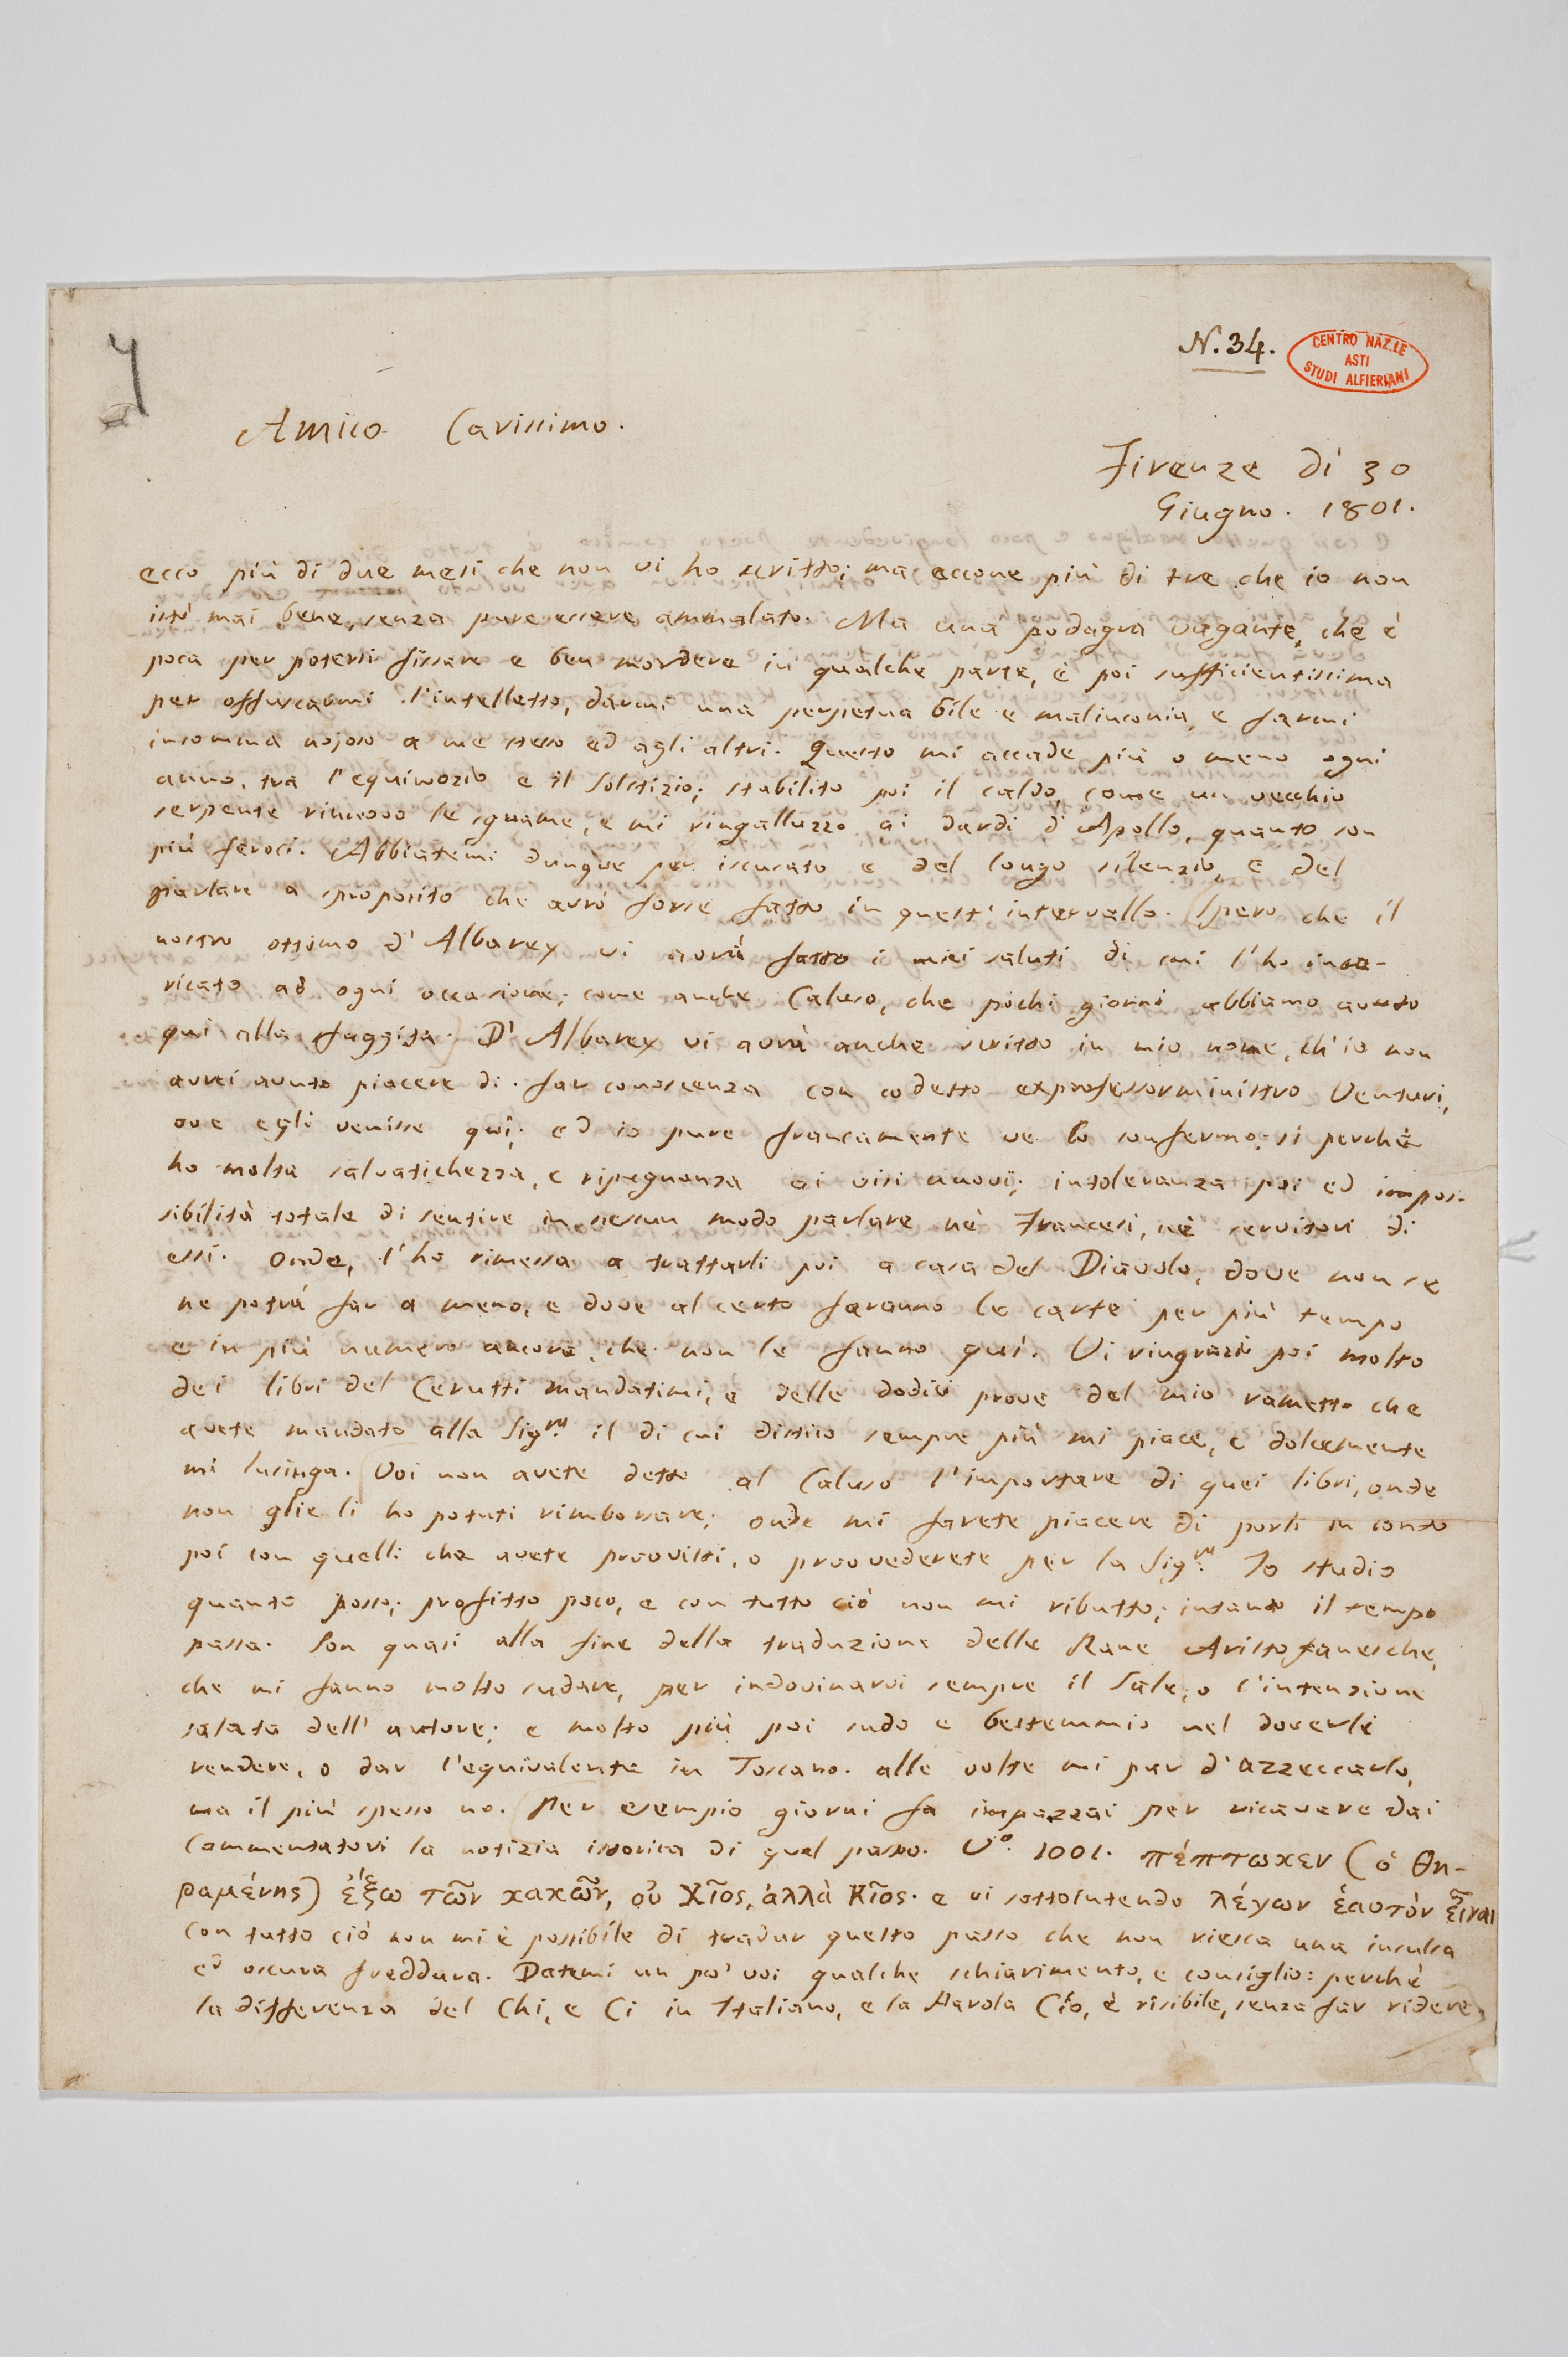 N. 34.
CENTRO NAZ.LE
ASTI
STUDI ALFIERIANI
Amico Carissimo.
Firenze dì 30
Giugno. 1801.
ecco più di due mesi che non vi ho scritto; ma eccone più di tre che io non
istò mai bene, senza pure essere ammalato. Ma una podagra vagante, che è
poca per potersi fissare e ben mordere in qualche parte, è poi sufficientissima
per offuscarmi l'intelletto, darmi una perpetua bile e malinconia, e farmi
insomma nojoso a me stesso ed agli altri. Questo mi accade più o meno ogni
anno, tra l'equinozio e il Solstizio; stabilito poi il caldo, come un vecchio
serpente rinnovo le squame, e mi ringalluzzo ai dardi d'Apollo, quanto son
più feroci. Abbiatemi dunque per iscusato e del lungo silenzio, e del
parlare a sproposito che avrò forse fatto in quest'intervallo. Spero che il
nostro ottimo d'Albarey vi avrà fatto i miei saluti di cui l'ho inca-
ricato ad ogni occasione; come anche Caluso, che pochi giorni abbiamo avuto
qui alla sfuggita. D'Albarey vi avrà anche scritto in mio nome, ch'io non
avrei avuto piacere di far conoscenza con codesto exprofessorministro Venturi,
ove egli venisse quì; ed io pure francamente ve lo confermo; sì perchè
ho molta salvatichezza, e ripugnanza ai visi nuovi; intoleranza poi ed impos-
sibilità totale di sentire in nessun modo parlare nè Francesi, nè servitori di
essi. Onde, l'ho rimessa a trattarli poi a casa del Diavolo, dove non se
ne potrà far a meno, e dove al certo faranno le carte per più tempo
e in più numero ancora, che non le fanno quì. Vi ringrazio poi molto
dei libri del Cerutti mandatimi, e delle dodici prove del mio rametto che
avete mandato alla Sig.ra il di cui distico sempre più mi piace, e dolcemente
mi lusinga. Voi non avete detto al Caluso l'importare di quei libri, onde
non glie li ho potuti rimborsare; onde mi farete piacere di porli in conto
poi con quelli che avete provvisti, o provvederete per la Sig.ra Io studio
quanto posso; profitto poco, e con tutto ciò non mi ributto; intanto il tempo
passa. Son quasi alla fine della traduzione delle Rane Aristofanesche,
che mi fanno molto sudare, per indovinarvi sempre il Sale, o l'intenzione
salata dell'autore; e molto più poi sudo e bestemmio nel doverli
rendere, o dar l'equivalente in Toscano. alle volte mi par d'azzeccarlo,
ma il più spesso no. Per esempio giorni fa impazzai per ricavare dai
Commentatori la notizia istorica di quel passo. V.º 1001. πέπτωχεν (ὁ Θη-
ραμένης) ἔξω τῶν χαχῶν, οὐ Χῖος, ἀλλὰ Κῖος. e vi sottointendo λέγων ἑαυτὸν εἶναι
con tutto ciò non mi è possibile di tradur questo passo che non riesca una insulsa
ed oscura freddura. Datemi un po' voi qualche schiarimento, e consiglio: perchè
la differenza del Chi, e Ci in Italiano, e la Parola Cío, è risibile, senza far ridere,